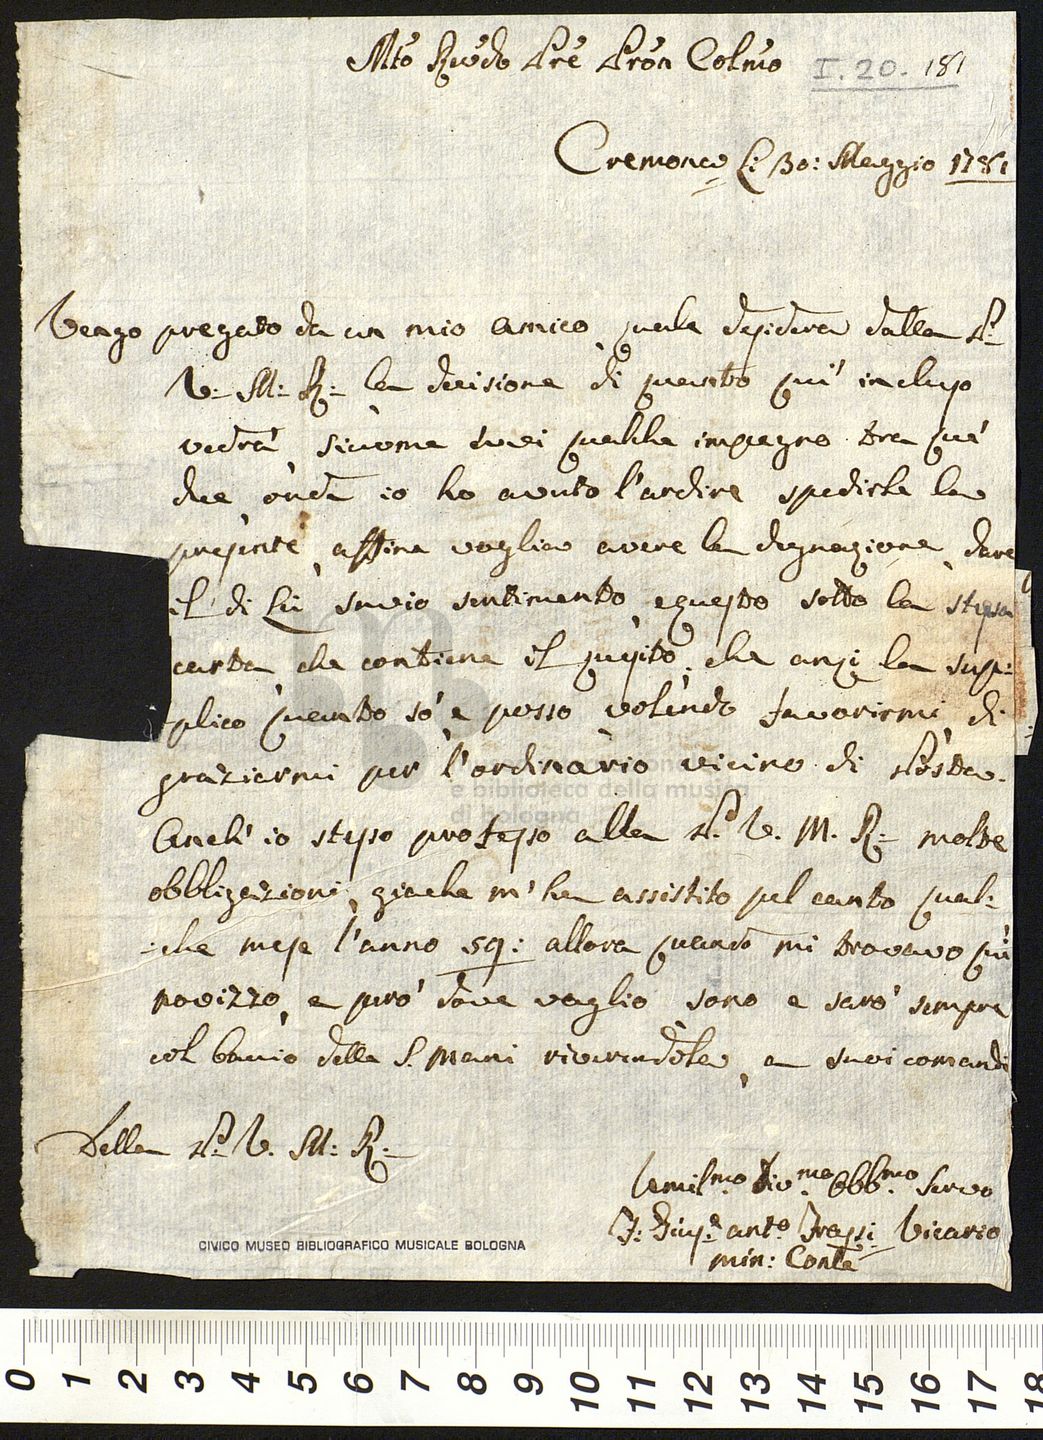 Mto Rṽdo Pre Pron Colmo I. 20. 181
Cremona Li 30: Maggio 1781
Vengo pregato da un mio amico, quale desidera dalla P.
V. M: R: la decisione di quanto quì incluso
vedrà, siccome àvvi qualche impegno tra quì
due, onde io ho avuto l'ardire spedirle la
presente, affine voglia avere la degnazione, dare
il di Lei savio sentimento, e questo sotto la stessa
carta, che contiene il quesito, che anzi la sup:
plico quanto sò, e posso, volendo favorirmi, di
graziarmi per l'ordinario vicino di Posta.
Anch'io stesso professo alla P. V. M. R: molte
obbligazioni, giache m'ha assistito pel canto qual:
:che mese l'anno 59: allora quando mi trovavo quì
novizzo, e però dove vaglio sono, e sarò sempre
col bacio delle S. Mani riverendole, a suoi comandi
Della P. V. M: R:
Umilmo Divmo Obblmo Servo
F: Giuse anto Frassi Vicario
min: Contle
CIVICO MUSEO BIBLIOGRAFICO MUSICALE BOLOGNA
e biblioteca della musica
di bologna
0 1 2 3 4 5 6 7 8 9 10 11 12 13 14 15 16 17 18